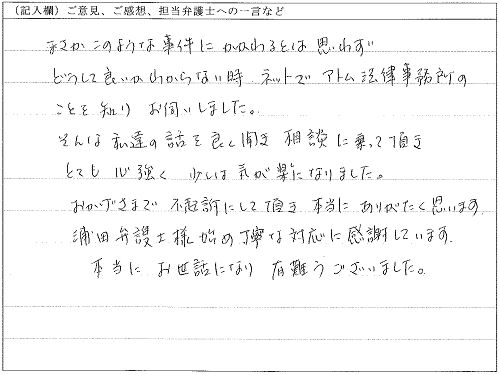 （記入欄）ご意見、ご感想、担当弁護士への一言など
まさかこのような事件にかかわるとは思わず
どうして良いかわからない時、ネットでアトム法律事務所の
ことを知り お伺いしました。
そんな私達の話を良く聞き 相談に乗って頂き
とても心強く 少しは気が楽になりました。
おかげさまで 不起訴にして頂き 本当にありがたく思います。
浦田弁護士様始め丁寧な対応に感謝しています。
本当に お世話になり 有難うございました。